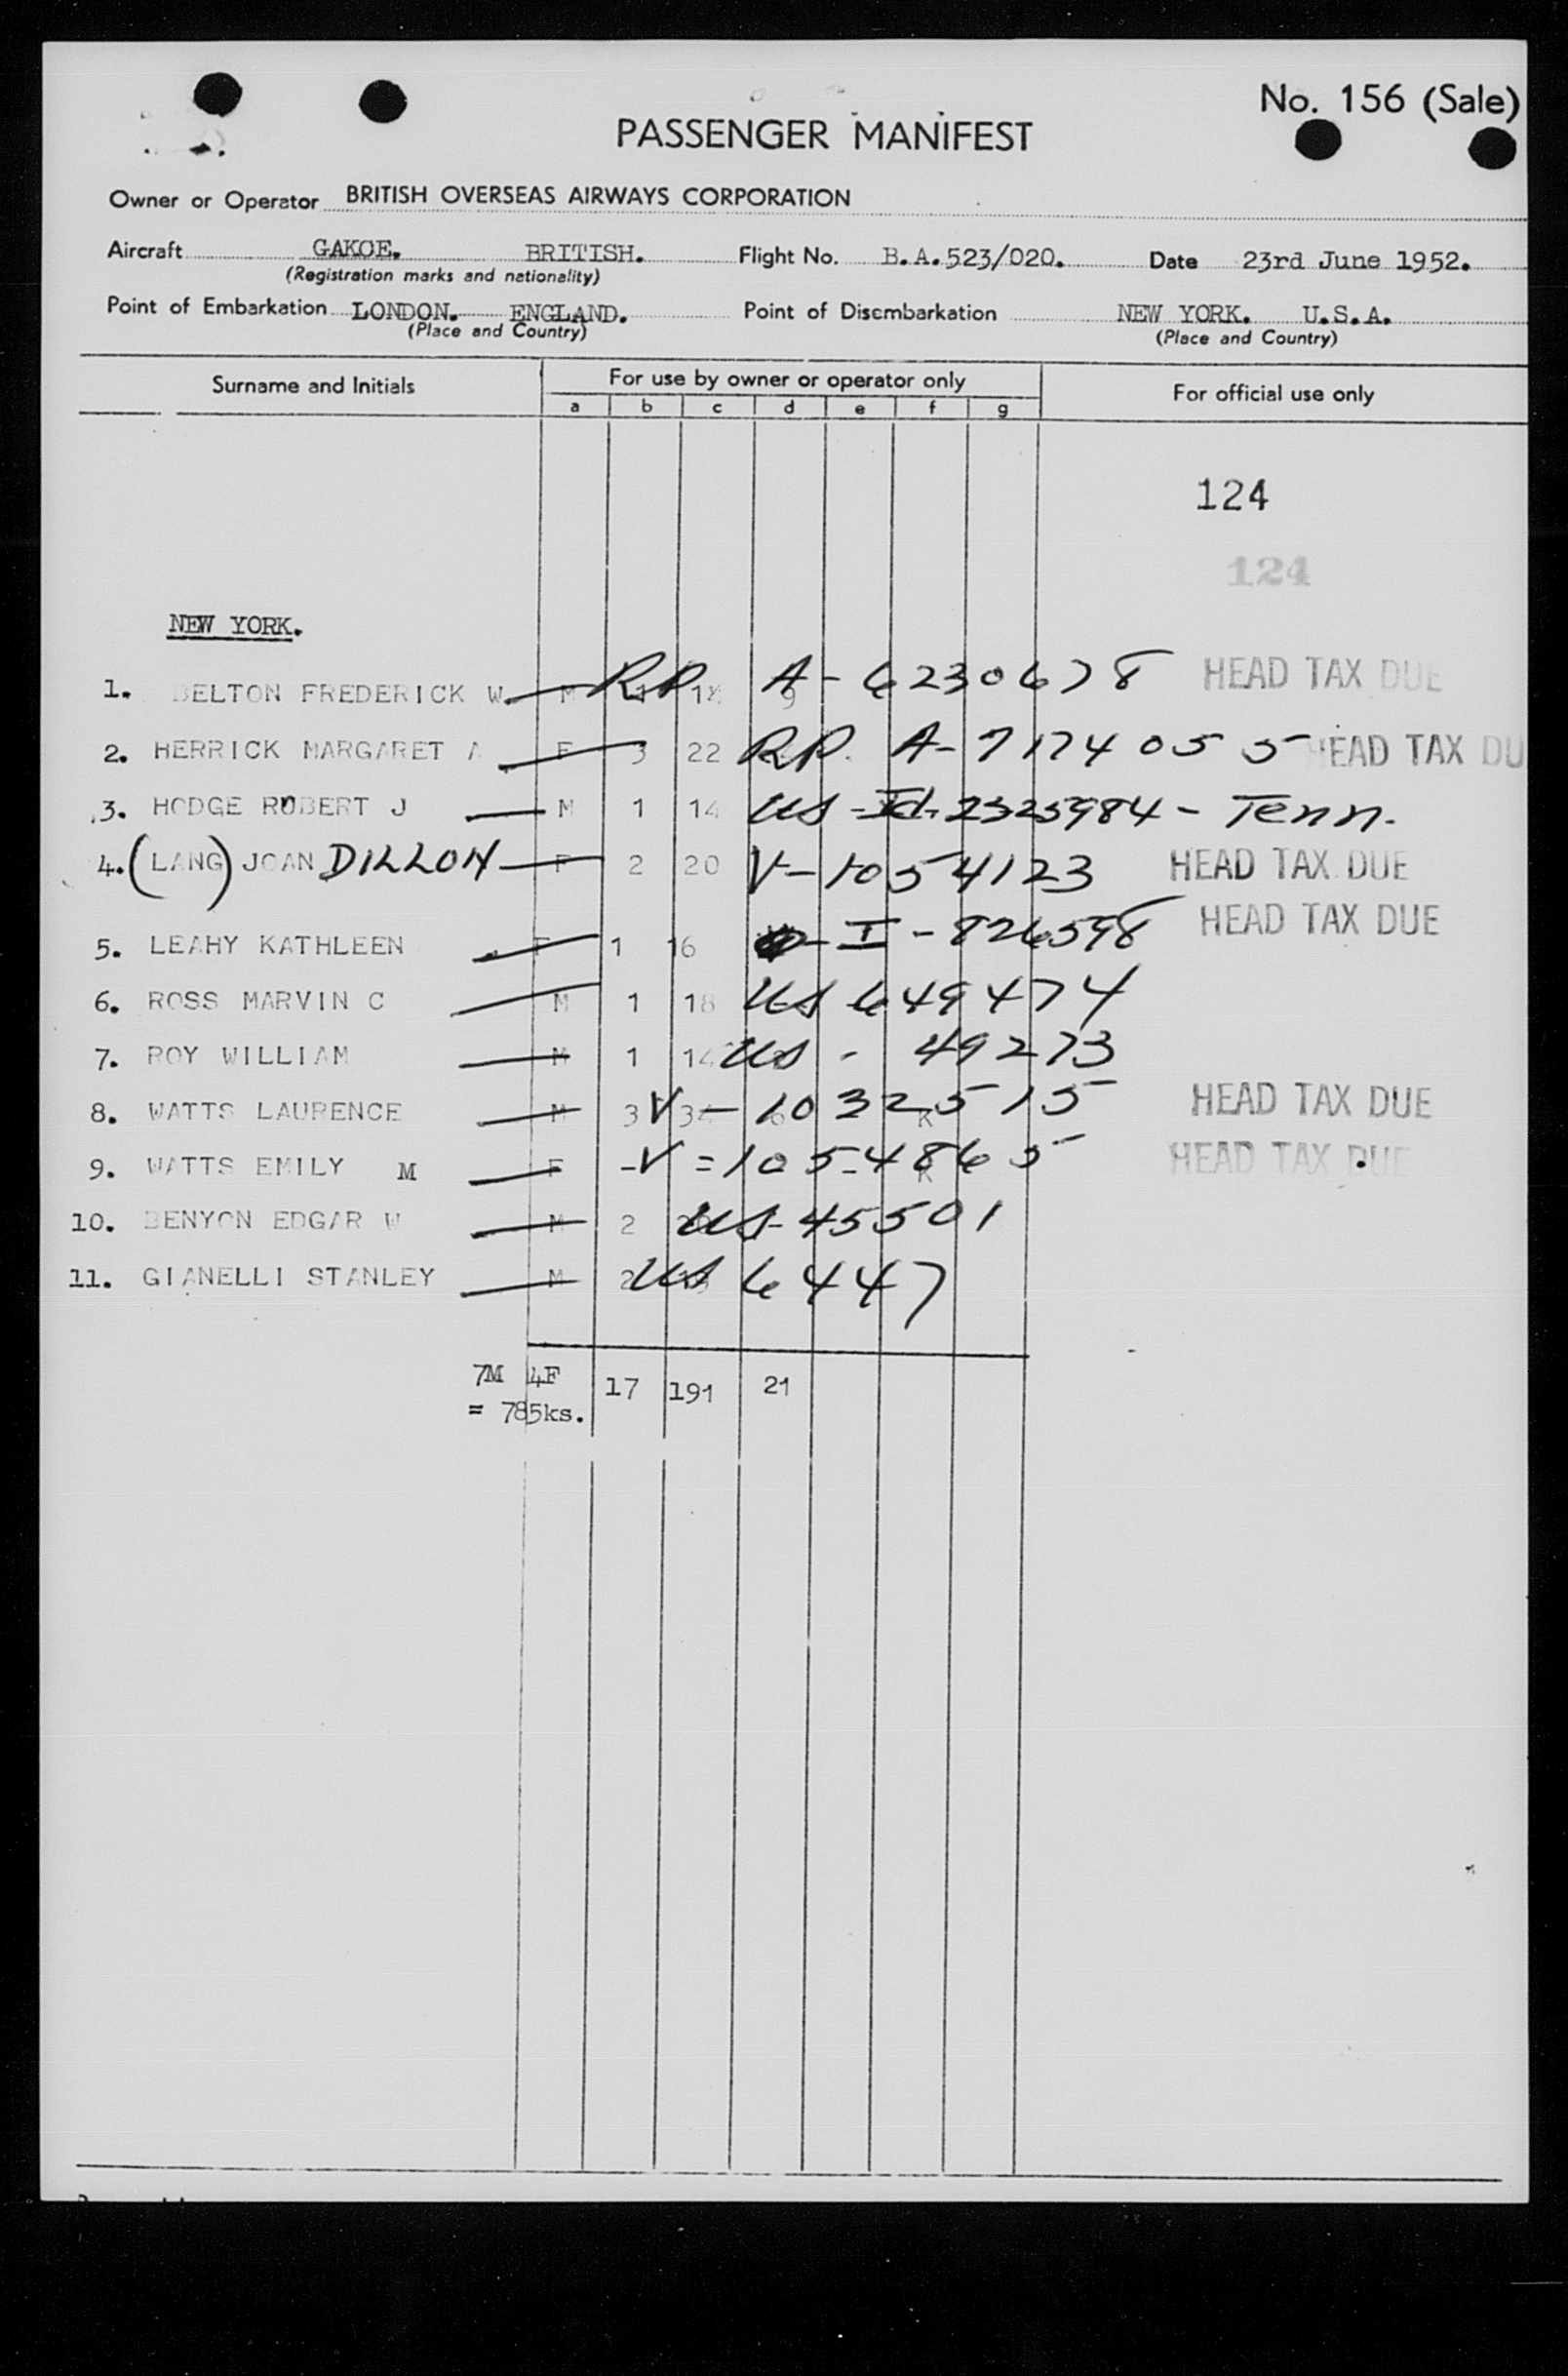 No. 156 (Sale)
PASSENGER MANIFEST
Owner or Operator BRITISH OVERSEAS AIRWAYS CORPORATION
Aircraft GAKOE. BRITISH. Flight No. B.A.523/020. Date 23rd June 1952.
(Registration marks and nationality)
Point of Embarkation LONDON. ENGLAND. Point of Disembarkation NEW YORK. U.S.A.
(Place and Country) (Place and Country)
Surname and Initials For use by owner or operator only For official use only
a b c d e f g
124
124
NEW YORK.
1. BELTON FREDERICK W. M RP A-6230678 HEAD TAX DUE
2. HERRICK MARGARET A F 3 22 RP. A-7174055 HEAD TAX DU
3. HODGE ROBERT J M 1 14 US-Id-2325984-Tenn.
4. (LANG) JOAN DILLON F 2 20 V-1054123 HEAD TAX DUE
5. LEAHY KATHLEEN F 1 16 I-826598 HEAD TAX DUE
6. ROSS MARVIN C M 1 18 US 649474
7. ROY WILLIAM M 1 14 US - 49273
8. WATTS LAURENCE M 3 V-1032515 K HEAD TAX DUE
9. WATTS EMILY M F - V=1054865 K HEAD TAX DUE
10. BENYON EDGAR W M 2 US-45501
11. GIANELLI STANLEY M 2 US 6447
7M 4F 17 191 21
= 785ks.